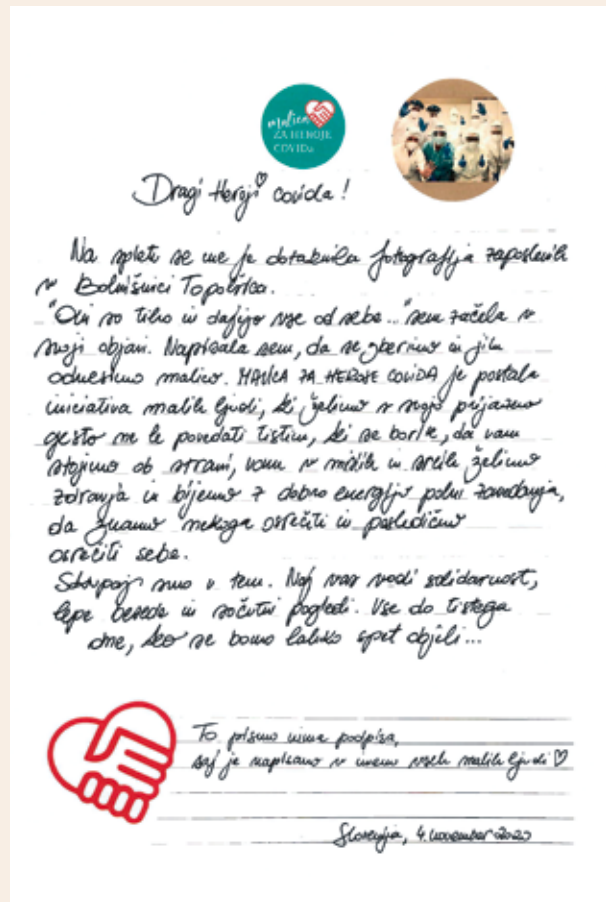 malica
ZA HEROJE
COVIDa
Dragi Heroji covida!
Na spletu se me je dotaknila fotografija zaposlenih
v Bolnišnici Topolšica.
"Oni so tiho in dajejo vse od sebe..." sem začela v
svoji objavi. Napisala sem, da se zberimo in jih
odnesimo malico. MALICA ZA HEROJE COVIDA je postala
iniciativa malih ljudi, ki želimo s svojo prijazno
gesto ne le povedati tistim, ki se borite, da vam
stojimo ob strani, vam v mislih in srcih želimo
zdravja in bijemo z dobro energijo polni zavedanja,
da znamo nekoga osrečiti in posledično
osrečiti sebe.
Skupaj smo v tem. Naj vas vodi solidarnost,
lepe besede in sočutni pogledi. Vse do tistega
dne, ko se bomo lahko spet objeli...
To pismo nima podpisa,
saj je napisano v imenu vseh malih ljudi ♡
Slovenija, 4. november 2020